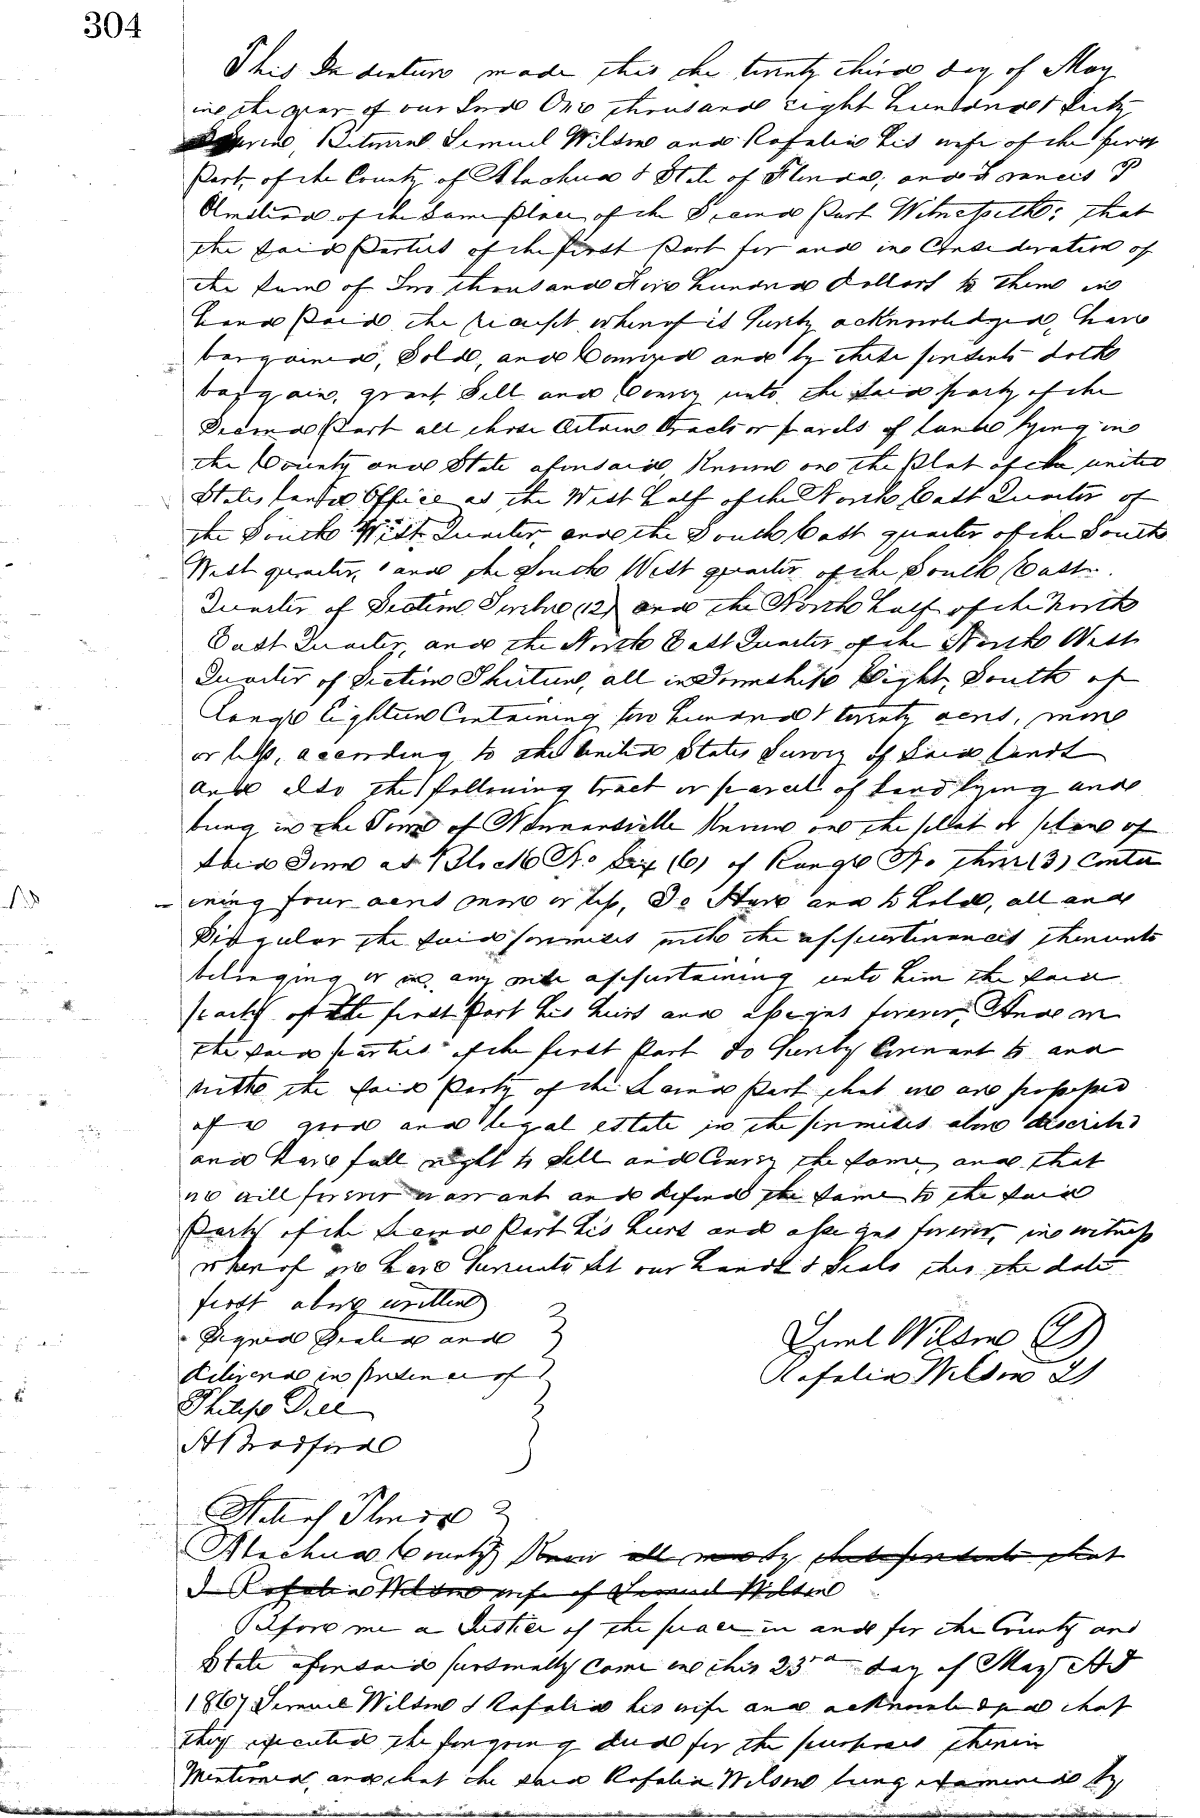 304
This Indenture made this the twenty third day of May
in the year of our Lord One thousand eight hundred & Sixty
Seven, Between Lemuel Wilson and Rosalia his wife of the first
Part, of the County of Alachua & State of Florida, and Francis P
Olmstead of the Same Place, of the Second Part Witnesseth; that
the Said Parties of the first Part for and in Consideration of
the Sum of Two thousand Five hundred dollars to them in
hand Paid, the receipt whereof is hereby acknowledged, have
bargained, Sold, and Conveyed and by these presents doth
bargain, grant, Sell and Convey unto the Said party of the
Second Part all those Certain tracts or parcels of land lying in
the County and State aforesaid, Known on the Plat of the united
States land Office as the West half of the North East Quarter of
the South West Quarter, and the South East quarter of the South
West quarter, and the South West quarter of the South East
Quarter of Section Twelve (12) and the North half of the North
East Quarter, and the North East Quarter of the North West
Quarter of Section Thirteen, all in Township Eight, South of
Range Eighteen Containing two hundred & twenty acres, more
or less, according to the United States Survey of Said lands
and also the following tract or parcel of land lying and
being in the Town of Newnansville Known on the plat or plan of
Said Town as Block No Six (6) of Range No three (3) Conta
ining four acres more or less, To Have and to hold, all and
Singular the Said premises with the appurtenances thereunto
belonging or in any wise appurtaining unto him the Said
party of the first Part his heirs and assigns forever, And we
the Said parties of the first Part do hereby Covenant to and
with the Said Party of the Second Part that we are possessed
of a good and legal estate in the premises above described
and have full right to Sell and Convey the Same, and that
we will forever warrant and defend the Same to the Said
Party of the Second Part his heirs and assigns forever, in witness
whereof we have hereunto Set our hands & Seals this the date
first above written
Signed Sealed and
delivered in presence of
Philip Dell
A Bradford
Leml Wilson LS
Rosalia Wilson LS
State of Florida
Alachua County Know all men by these presents that
I Rosalia Wilson wife of Lemuel Wilson
Before me a Justice of the peace in and for the County and
State aforesaid personally Come on this 23rd day of May AD
1867 Lemuel Wilson & Rosalia his wife and acknowledged that
they executed the foregoing deed for the purposes therein
Mentioned, and that the said Rosalia Wilson being examined by